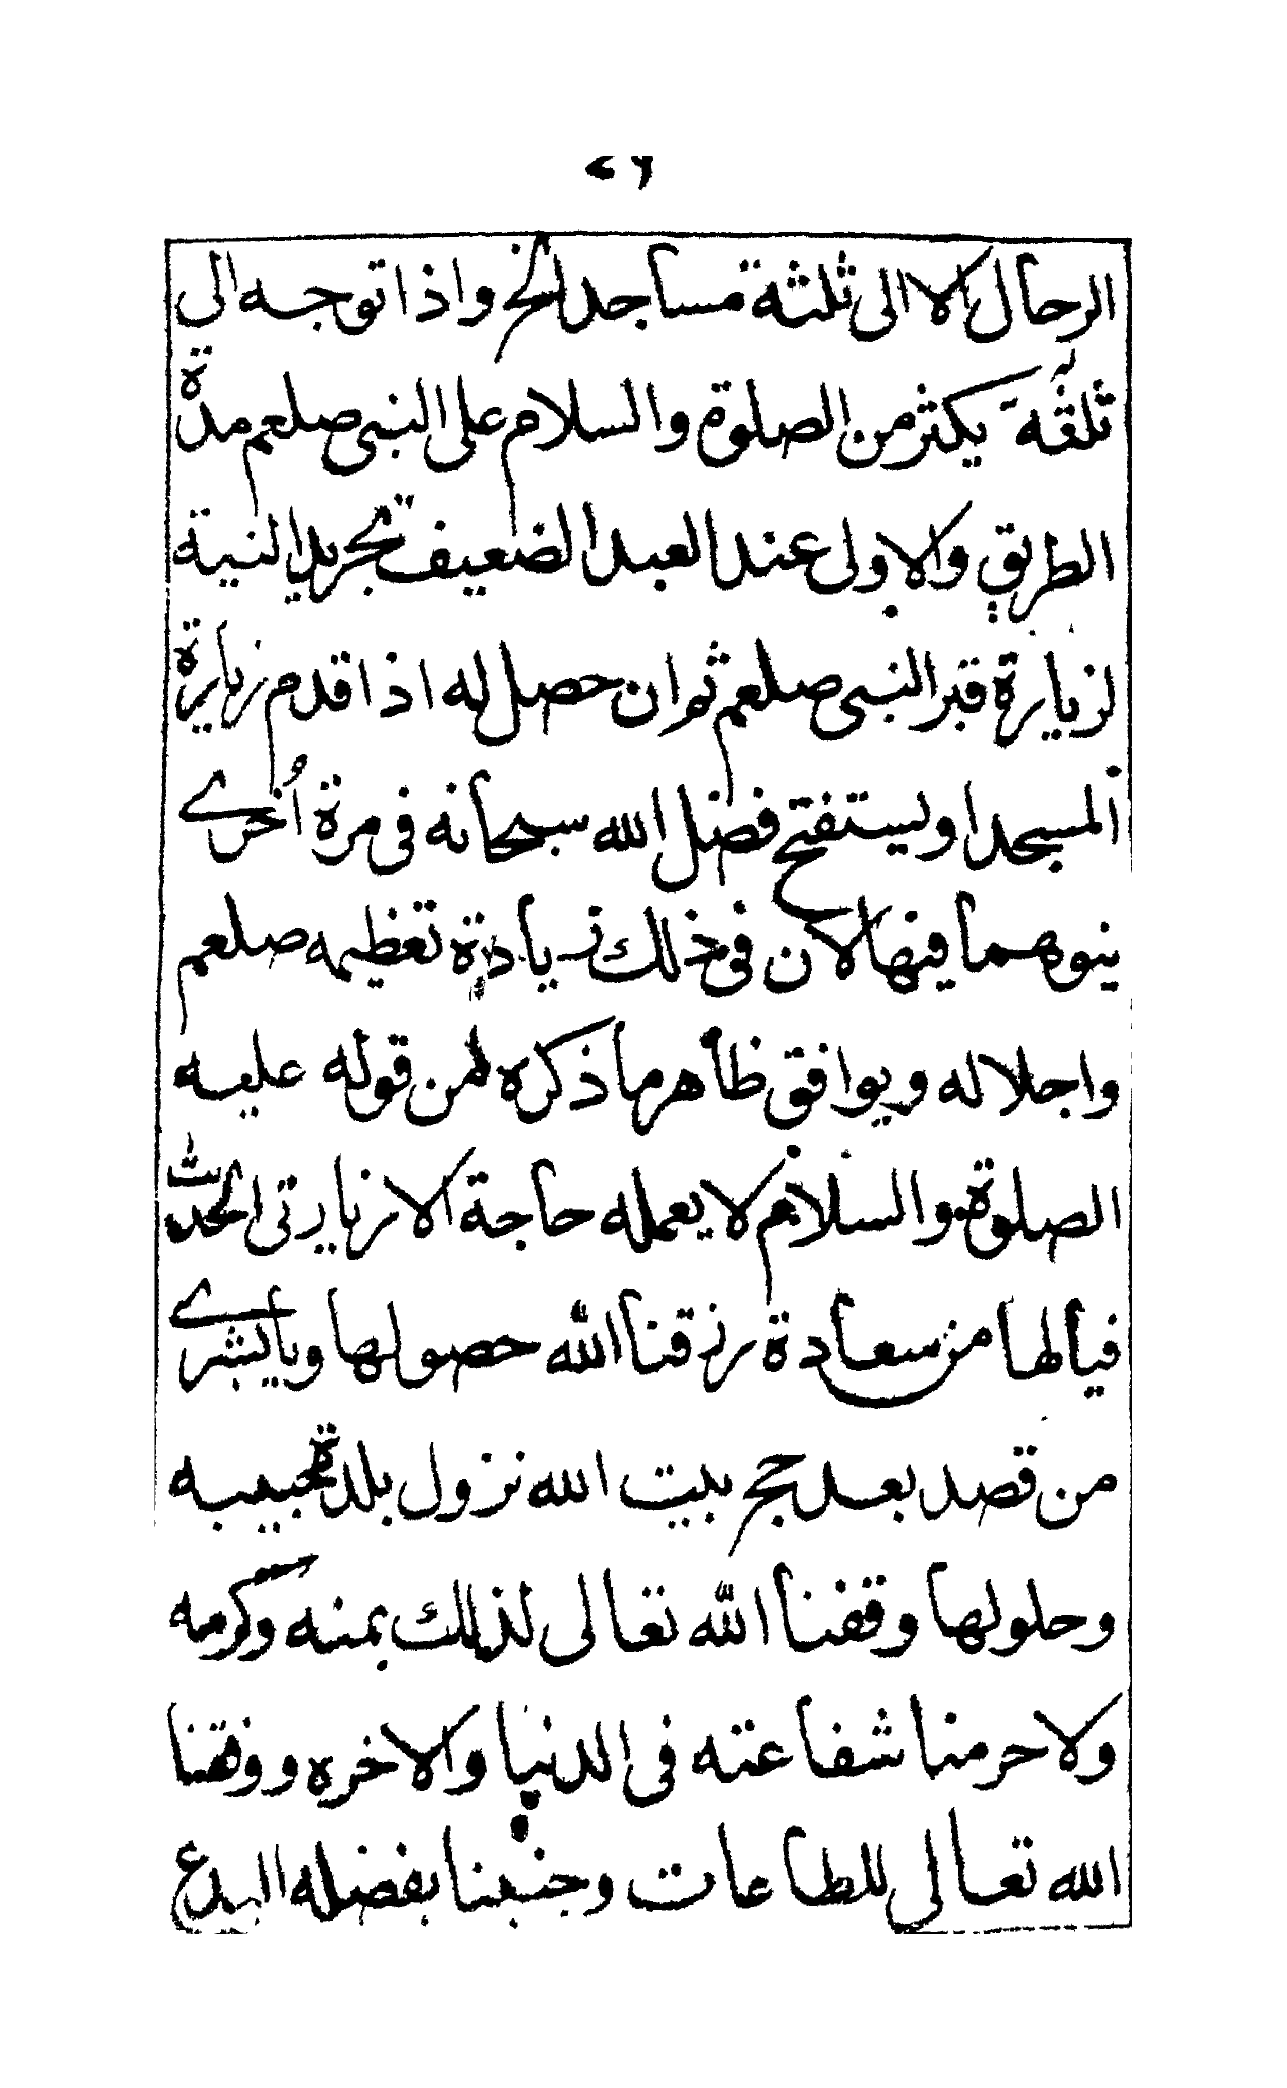 ٢٦
الرحال الا الى ثلثة مساجد الخ واذا توجه الى
يكثر من الصلوة والسلام على النبى صلعم مدة
الطريق والاولى عند العبد الضعيف تجريد النية
لزيارة قبر النبى صلعم ثم ان حصل له اذا قدم زيارة
المسجد او يستفتح فضل الله سبحانه فى مرة اخرے
ينويهما فيها لان فى ذلك زيادة تعظيمه صلعم
واجلاله ويوافق ظاهر ما ذكره من قوله عليه
الصلوة والسلام لا يعمله حاجة الا زيارتى الحديث
فيالها من سعادة رزقنا الله حصولها ويا بشرے
من قصد بعد حج بيت الله نزول بلدة حبيبه
وحلولها وفقنا الله تعالى لذلك بمنه وكرمه
ولا حرمنا شفاعته فى الدنيا والاخره ووفقنا
الله تعالى للطاعات وجنبنا بفضله البدع